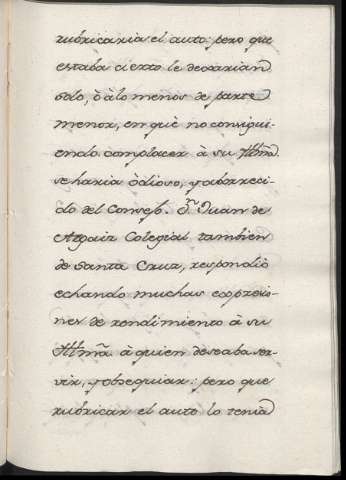 rubricaria el auto: pero que
estaba cierto le dexarian
solo, ò à lo menos de parte
menor, en què no consigui-
endo complacer à su Ylltmã.
se haria òdioso, y aborreci-
do del Consejo. Dn. Juan de
Colegial tambien
de Santa Cruz, respondiò
echando muchas expresio-
nes de rendimiento à su
Ylltmã à quien deseaba ser-
vir, y obsequiar: pero que
rubricar el auto lo tenia